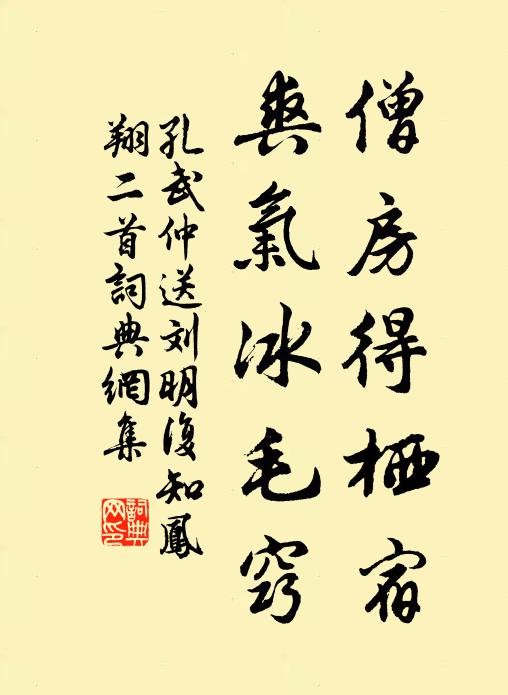 僧房得栖宿
爽氣冰毛窍
孔武仲送刘明復知鳳
翔二首詞典網集
詞典
网印